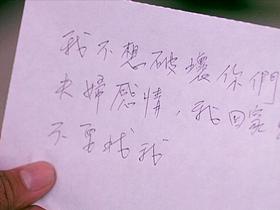 我不想破壞你們
夫婦感情，我回家
不要找我